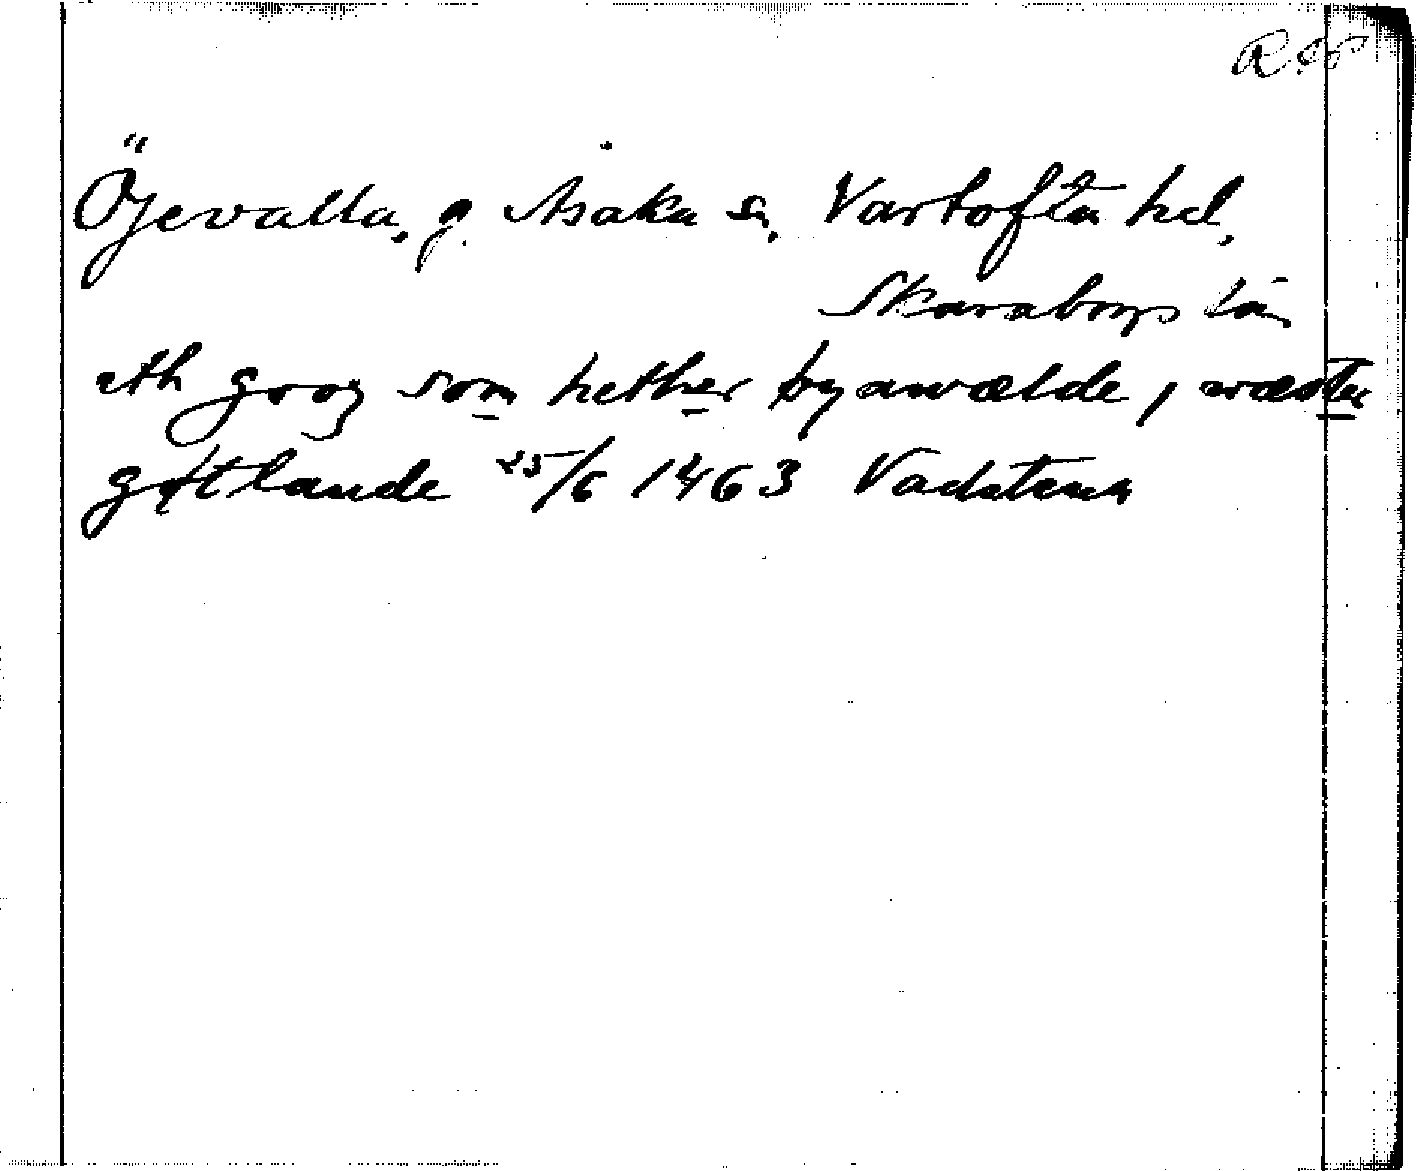 Öjevalla, g. Åsaka sn, Vartofta hd,
Skaraborgs län
eth gooz som hether øyawælde j wæster
gøtlande 25/6 1463 Vadstena